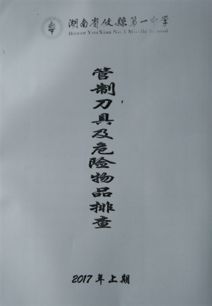 湖南省攸县第一中学
管制刀具及危险物品排查
2017年上期